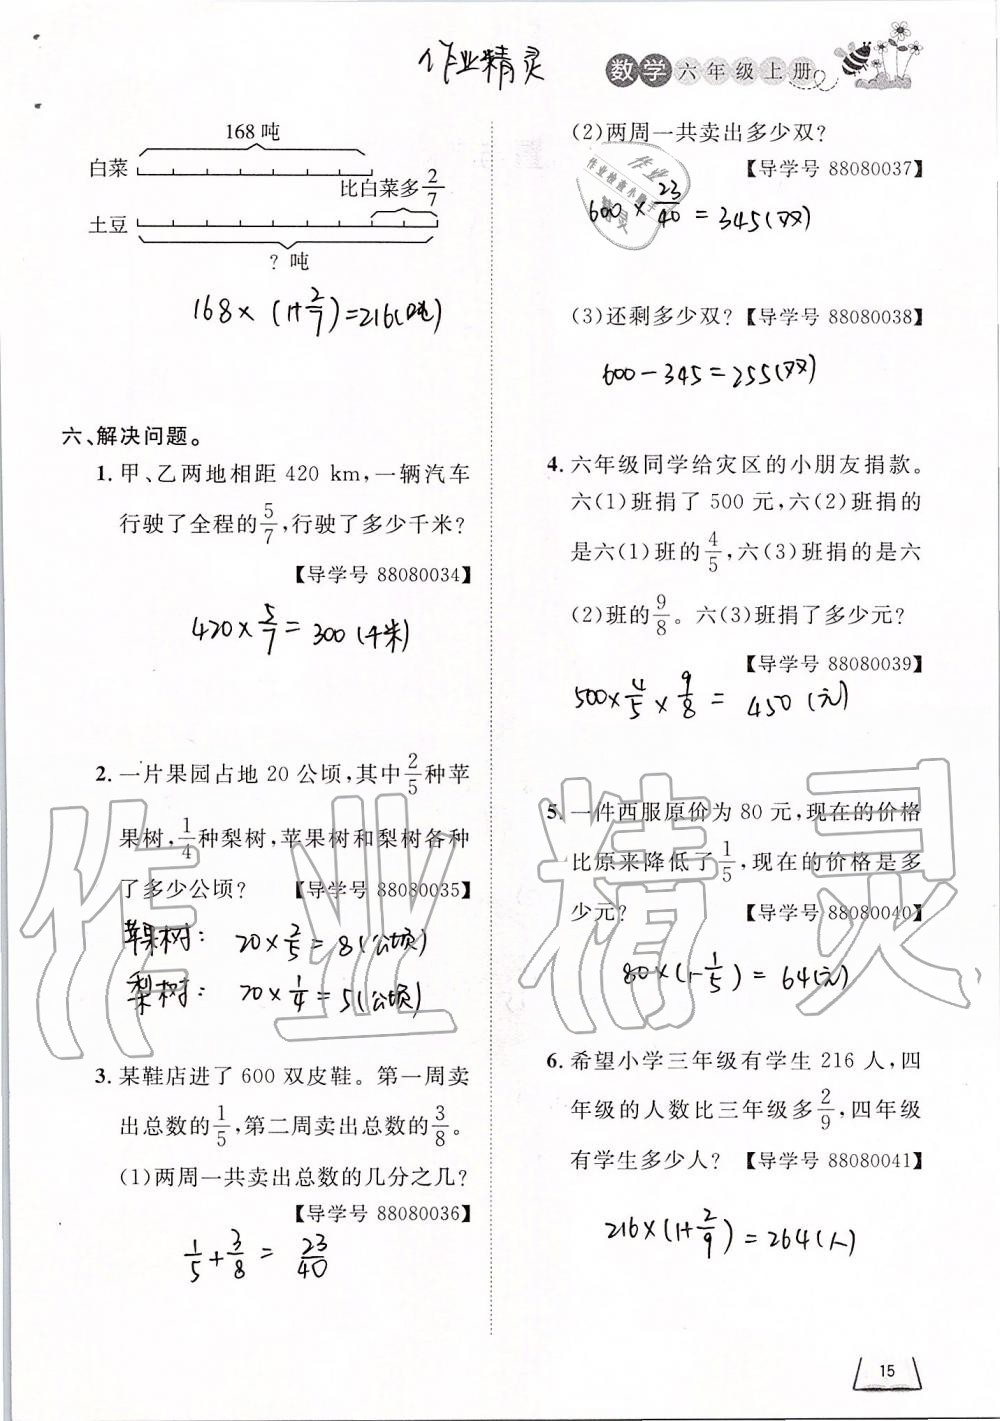 作业精灵
数学六年级上册
168 吨
白菜
比白菜多2/7
土豆
? 吨
168×(1+2/7)=216(吨)
六、解决问题。
1. 甲、乙两地相距 420 km,一辆汽车
行驶了全程的5/7,行驶了多少千米?
【导学号 88080034】
420×5/7=300(千米)
2. 一片果园占地 20 公顷,其中2/5种苹
果树,1/4种梨树,苹果树和梨树各种
了多少公顷?【导学号 88080035】
苹果树: 20×2/5=8(公顷)
梨树: 20×1/4=5(公顷)
3. 某鞋店进了 600 双皮鞋。第一周卖
出总数的1/5,第二周卖出总数的3/8。
(1)两周一共卖出总数的几分之几?
【导学号 88080036】
1/5+3/8=23/40
(2)两周一共卖出多少双?
【导学号 88080037】
作业
作业检查小助手
精灵
600×23/40=345(双)
(3)还剩多少双?【导学号 88080038】
600-345=255(双)
4. 六年级同学给灾区的小朋友捐款。
六(1)班捐了 500 元,六(2)班捐的
是六(1)班的4/5,六(3)班捐的是六
(2)班的9/8。六(3)班捐了多少元?
【导学号 88080039】
500×4/5×9/8=450(元)
5. 一件西服原价为 80 元,现在的价格
比原来降低了1/5,现在的价格是多
少元?【导学号 88080040】
80×(1-1/5)=64(元)
6. 希望小学三年级有学生 216 人,四
年级的人数比三年级多2/9,四年级
有学生多少人?【导学号 88080041】
216×(1+2/9)=264(人)
作业精灵
15